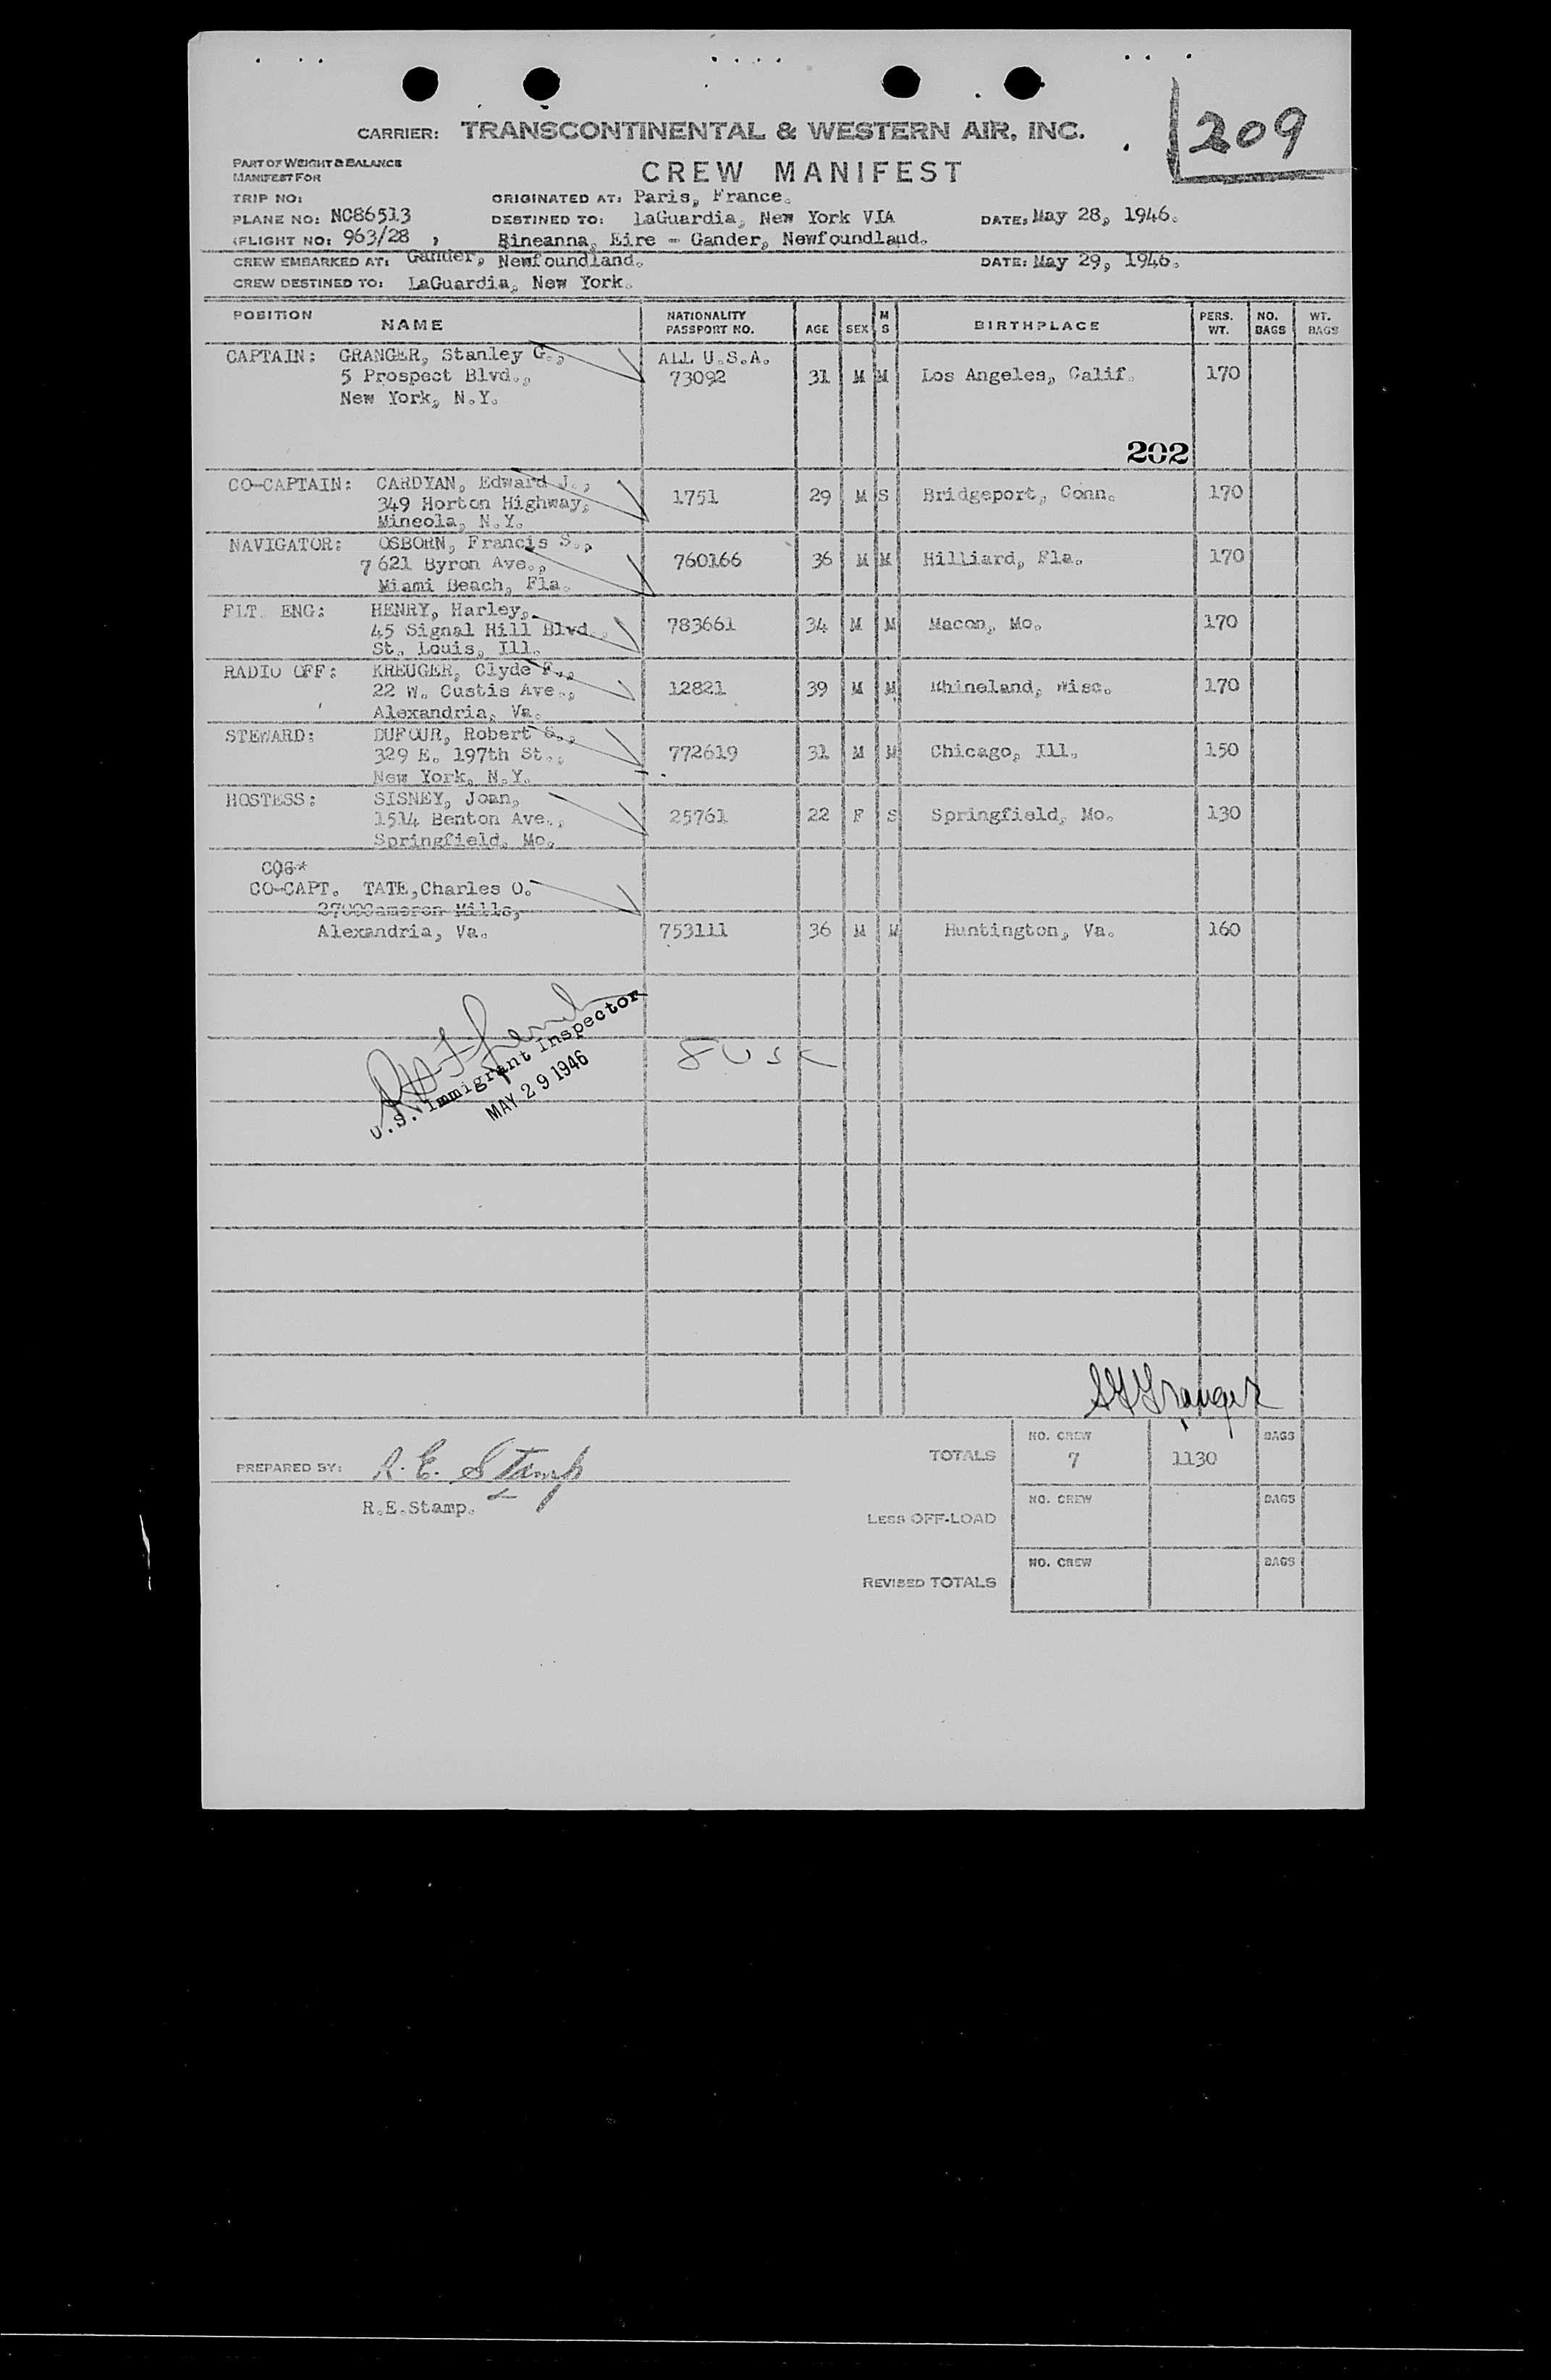 209
CARRIER: TRANSCONTINENTAL & WESTERN AIR, INC.
PART OF WEIGHT & BALANCE
MANIFEST FOR
CREW MANIFEST
TRIP NO: ORIGINATED AT: Paris, France.
PLANE NO: NC86513 DESTINED TO: LaGuardia, New York VIA DATE: May 28, 1946.
FLIGHT NO: 963/28 , Rineanna, Eire - Gander, Newfoundland.
CREW EMBARKED AT: Gander, Newfoundland. DATE: May 29, 1946.
CREW DESTINED TO: LaGuardia, New York.
POSITION NAME NATIONALITY PASSPORT NO. AGE SEX M S BIRTHPLACE PERS. WT. NO. BAGS WT. BAGS
CAPTAIN: GRANGER, Stanley G., ALL U.S.A.
5 Prospect Blvd., 73092 31 M M Los Angeles, Calif. 170
New York, N.Y.
202
CO-CAPTAIN: CARDYAN, Edward J.,
349 Horton Highway, 1751 29 M S Bridgeport, Conn. 170
Mineola, N.Y.
NAVIGATOR: OSBORN, Francis S.,
7621 Byron Ave., 760166 36 M M Hilliard, Fla. 170
Miami Beach, Fla.
FLT. ENG: HENRY, Harley,
45 Signal Hill Blvd., 783661 34 M M Macon, Mo. 170
St. Louis, Ill.
RADIO OFF: KREUGER, Clyde F.,
22 W. Custis Ave., 12821 39 M M Rhineland, Wisc. 170
Alexandria, Va.
STEWARD: DUFOUR, Robert G.,
329 E. 197th St., 772619 31 M M Chicago, Ill. 150
New York, N.Y.
HOSTESS: SISNEY, Joan,
1514 Benton Ave., 25761 22 F S Springfield, Mo. 130
Springfield, Mo.
CO-CAPT. TATE, Charles O.
2700Cameron Mills,
Alexandria, Va. 753111 36 M M Huntington, Va. 160
U.S. Immigrant Inspector
MAY 29 1946
8 USC
SGGranger
TOTALS NO. CREW 7 1130 BAGS
PREPARED BY: R. E. Stamp
R.E.Stamp.
LESS OFF-LOAD NO. CREW BAGS
REVISED TOTALS NO. CREW BAGS